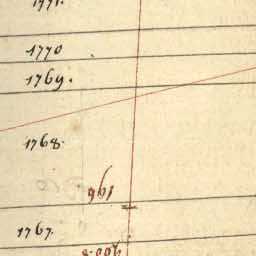 1771.
1770
1769.
1768.
1767.